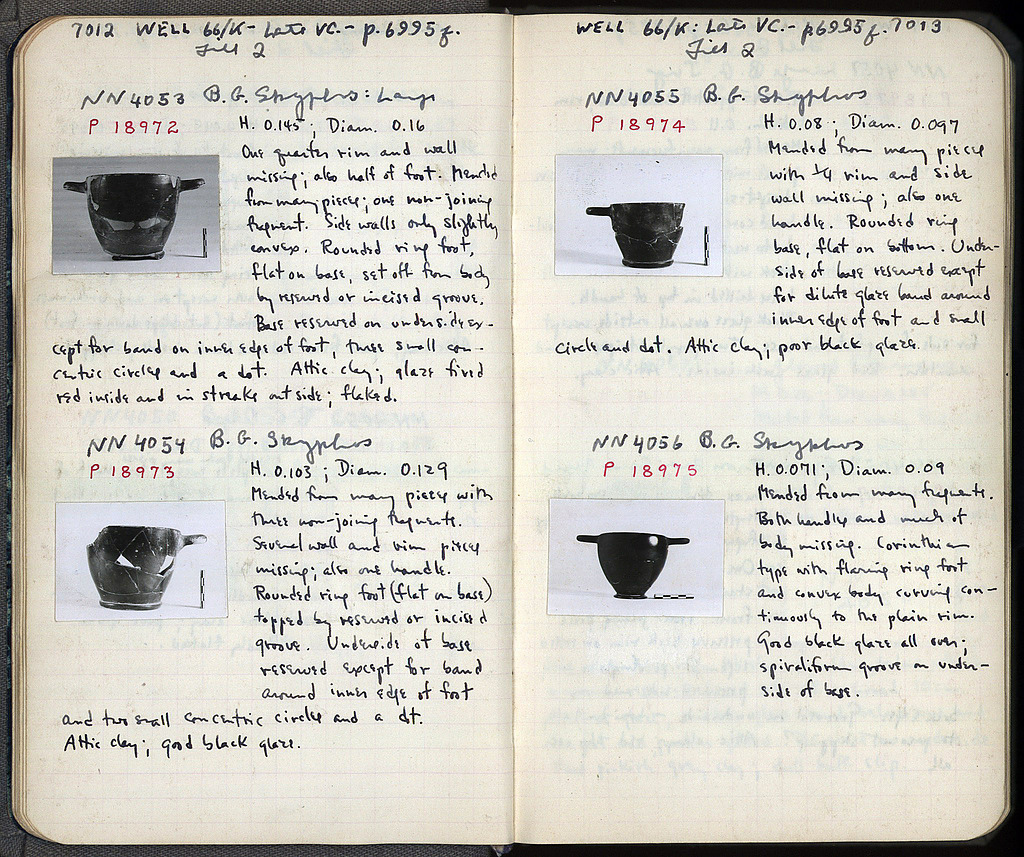 7012 WELL 66/K - Late VC. - p. 6995 f.
Fill 2
NN 4053 B.G. Skyphos: Large
P 18972
H. 0.145; Diam. 0.16
One quarter rim and wall
missing; also half of foot. Mended
from many pieces; one non-joining
fragment. Side walls only slightly
convex. Rounded ring foot,
flat on base, set off from body
by reserved or incised groove.
Base reserved on underside ex-
cept for band on inner edge of foot, three small con-
centric circles and a dot. Attic clay; glaze fired
red inside and in streaks outside; flaked.
NN 4054 B.G. Skyphos
P 18973
H. 0.103; Diam. 0.129
Mended from many pieces with
three non-joining fragments.
Several wall and rim pieces
missing; also one handle.
Rounded ring foot (flat on base)
topped by reserved or incised
groove. Underside of base
reserved except for band
around inner edge of foot
and two small concentric circles and a dot.
Attic clay; good black glaze.
WELL 66/K: Late VC. - p 6995 f. 7013
Fill 2
NN 4055 B.G. Skyphos
P 18974
H. 0.08; Diam. 0.097
Mended from many pieces
with 1/4 rim and side
wall missing; also one
handle. Rounded ring
base, flat on bottom. Under-
side of base reserved except
for dilute glaze band around
inner edge of foot and small
circle and dot. Attic clay; poor black glaze.
NN 4056 B.G. Skyphos
P 18975
H. 0.071; Diam. 0.09
Mended from many fragments.
Both handles and much of
body missing. Corinthian
type with flaring ring foot
and convex body curving con-
tinuously to the plain rim.
Good black glaze all over;
spiraliform groove on under-
side of base.